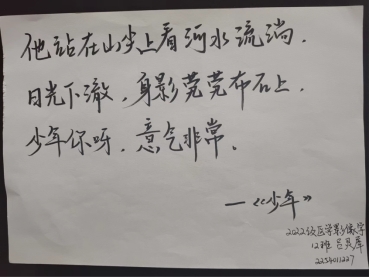 他站在山尖上看河水流淌.
日光下澈,身影莞莞布石上.
少年你呀,意气非常.
—《少年》
2022级医学影像学
12班 吕昊库
2254011227